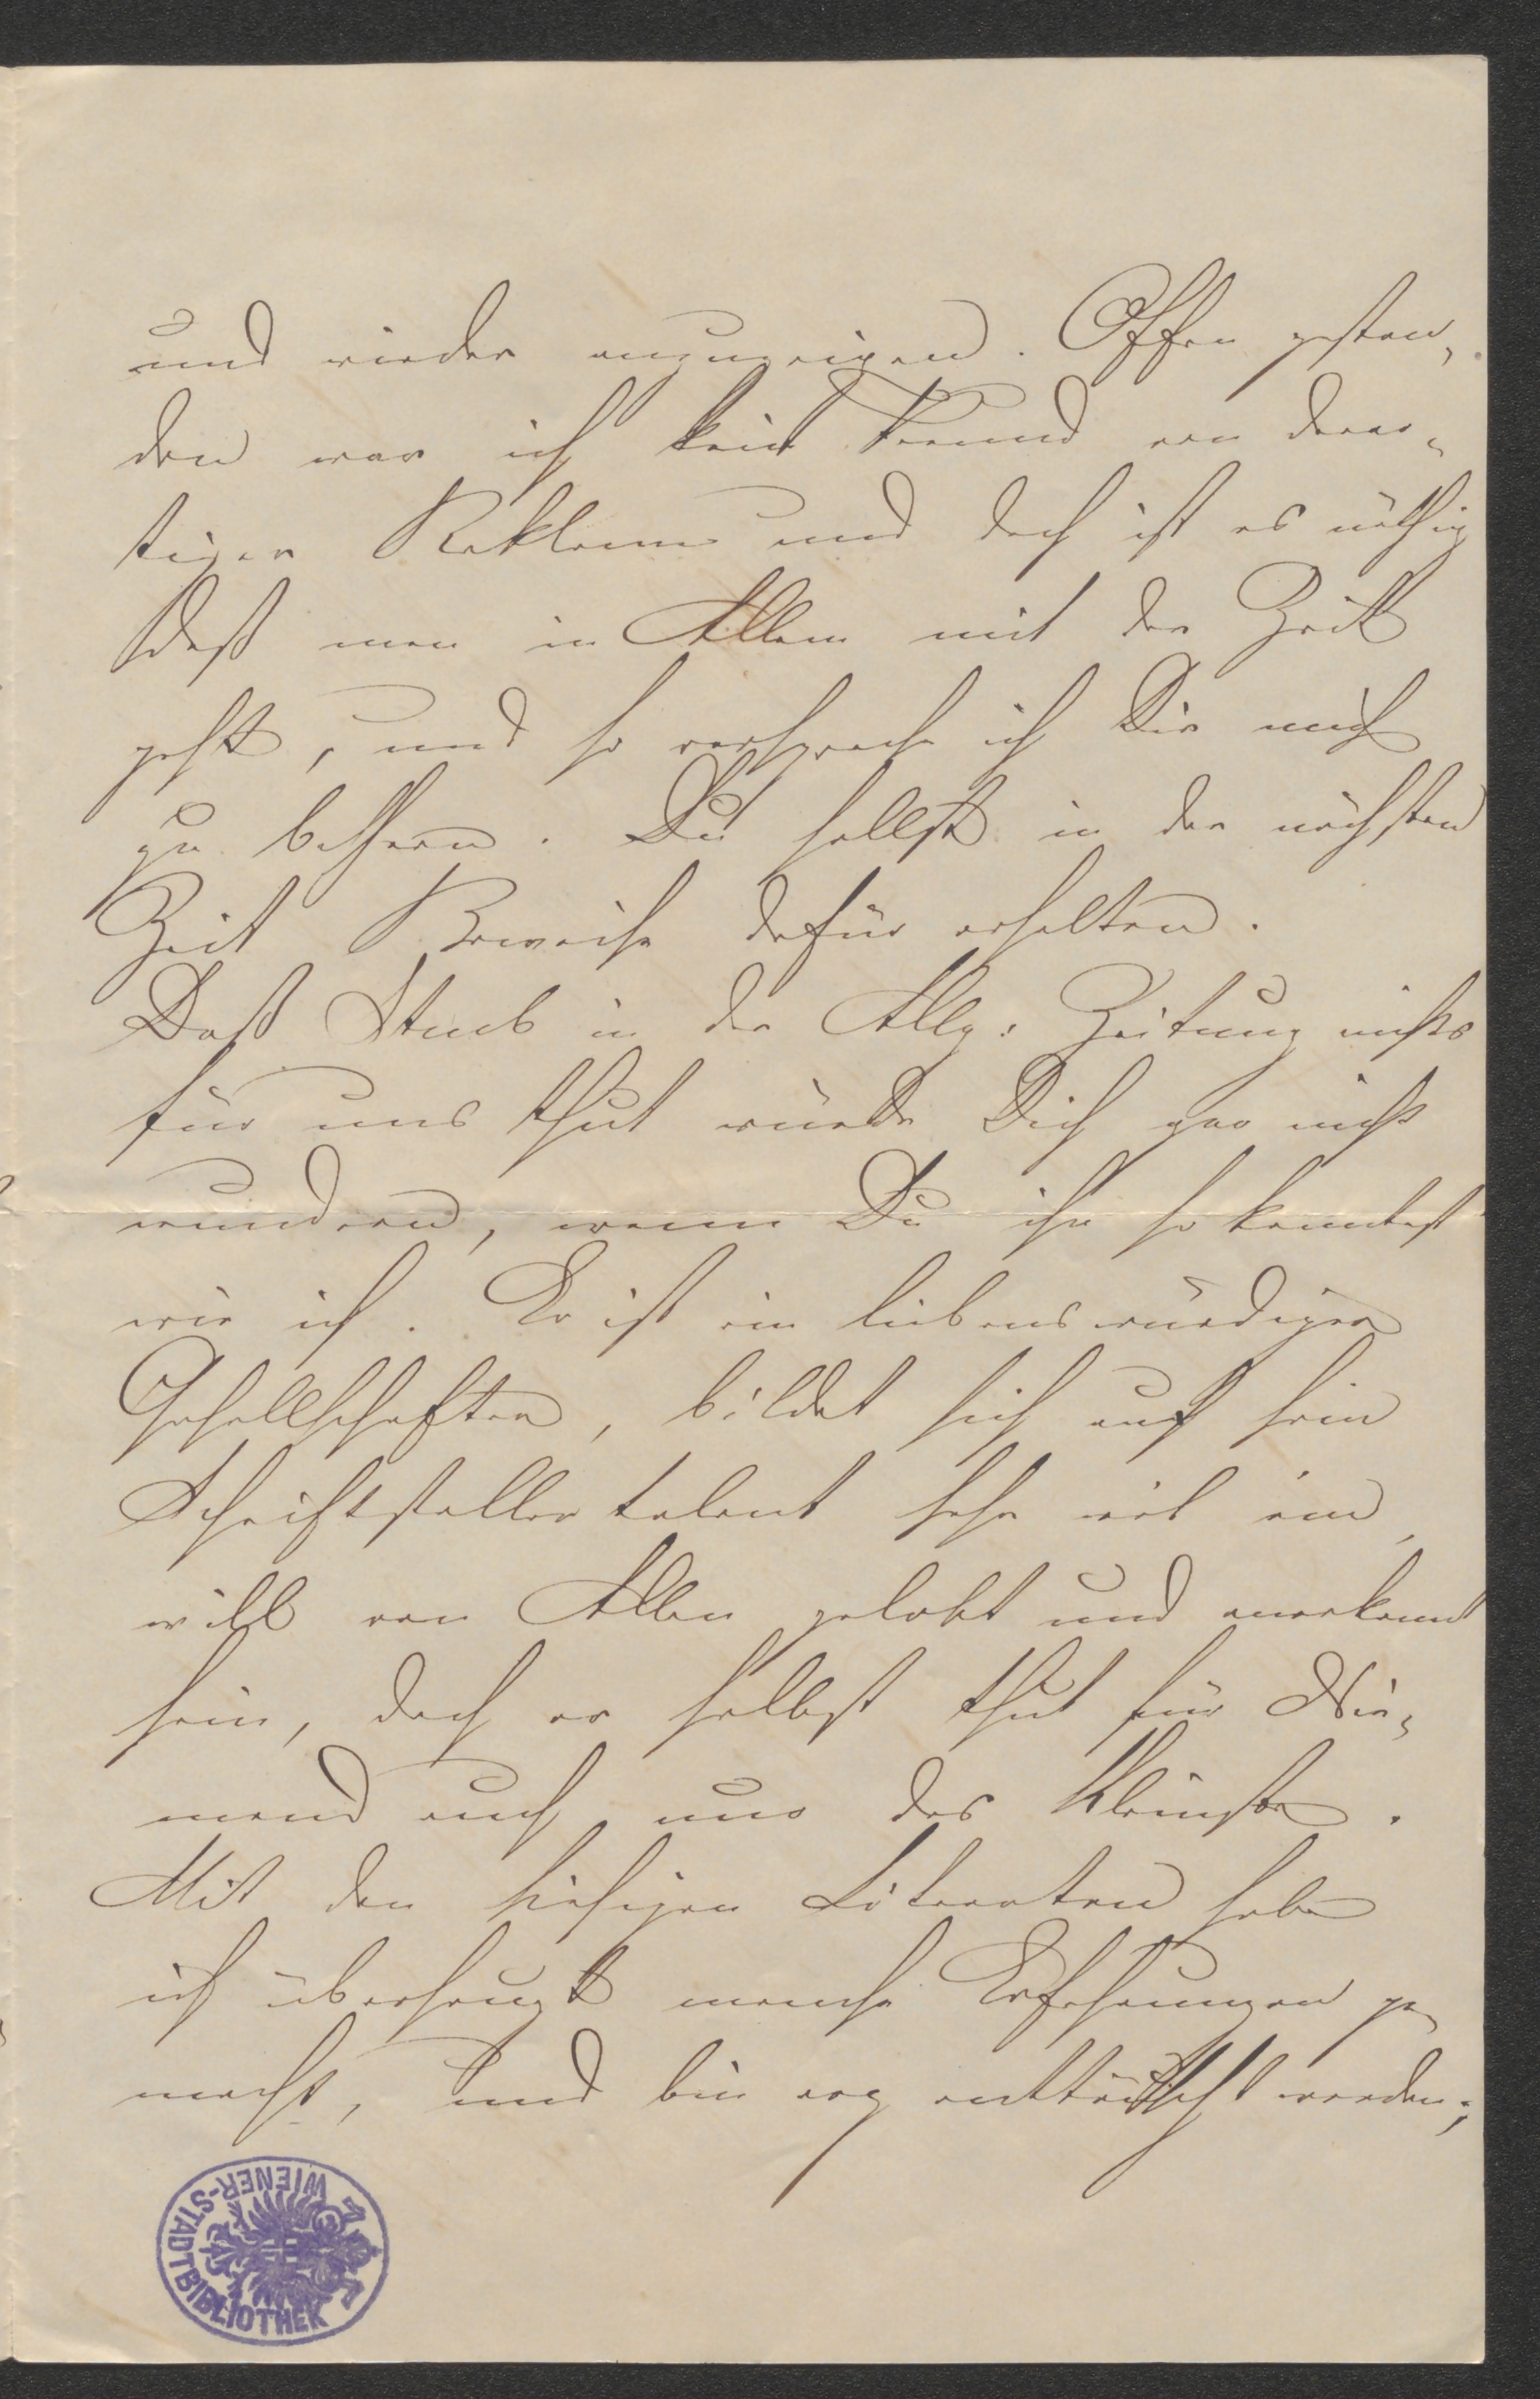 und wieder anzuzeigen. Offen gestan-
den war ich kein Freund von derar-
tiger Reklame und doch ist es nöthig
daß man in Allem mit der Zeit
geht, und so verspreche ich Dir mich
zu bessern. Du sollst in der nächsten
Zeit Beweise dafür erhalten.
Daß Stieb in der Allg: Zeitung nichts
für uns thut würde Dich gar nicht
wundern, wenn Du ihn so kenntest
wie ich. Er ist ein liebenswürdiger
Gesellschafter, bildet sich auf sein
Schriftstellertalent sehr viel ein,
will von Allen gelobt und anerkannt
sein, doch er selbst thut für Nie-
mand auch nur das Kleinste.
Mit den hiesigen Literaten habe
ich überhaupt manche Erfahrungen ge-
macht, und bin arg enttäuscht worden;
WIENER-STADTBIBLIOTHEK